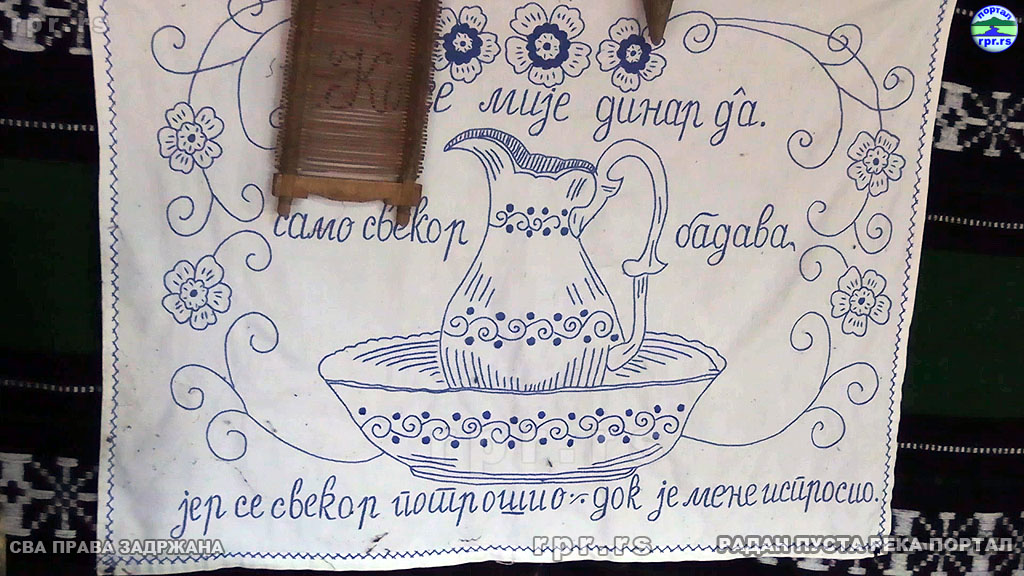 портал
rpr.rs
rpr.rs
мије динар да.
само свекор бадава,
rpr.rs
јер се свекор потрошио - док је мене испросио.
СВА ПРАВА ЗАДРЖАНА
rpr.rs
РАДАН ПУСТА РЕКА ПОРТАЛ